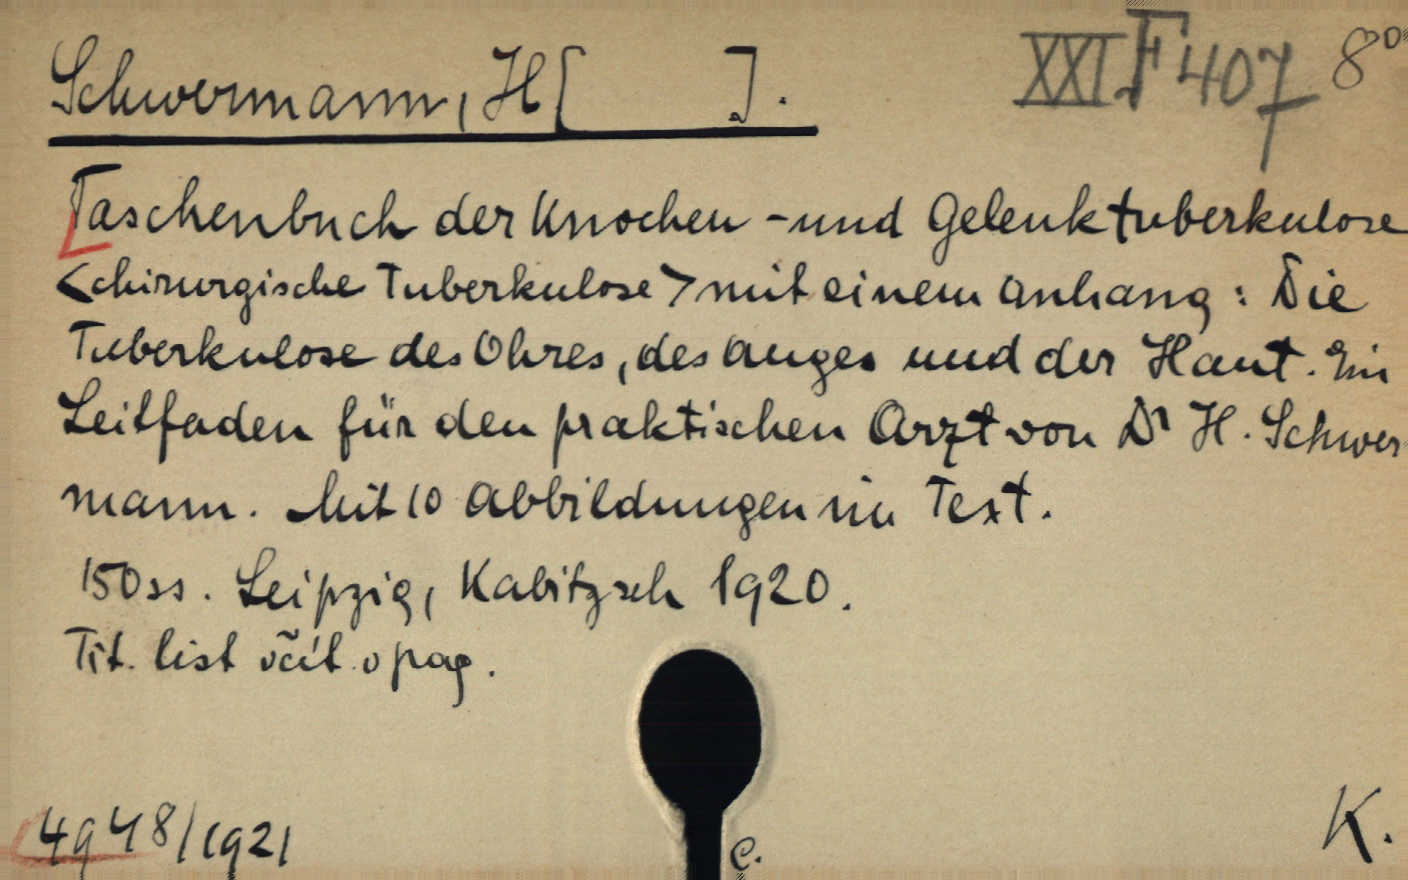 Schwermann, H[ ].
XXI F 407 8°
Taschenbuch der Knochen - und Gelenktuberkulose
<chirurgische Tuberkulose> mit einem Anhang: Die
Tuberkulose des Ohres, des Auges und der Haut. Ein
Leitfaden für den praktischen Arzt von Dr H. Schwer-
mann. Mit 10 Abbildungen im Text.
150 ss. Leipzig, Kabitzsch 1920.
Tit. list včít. v pag.
4948/1921
C.
K.